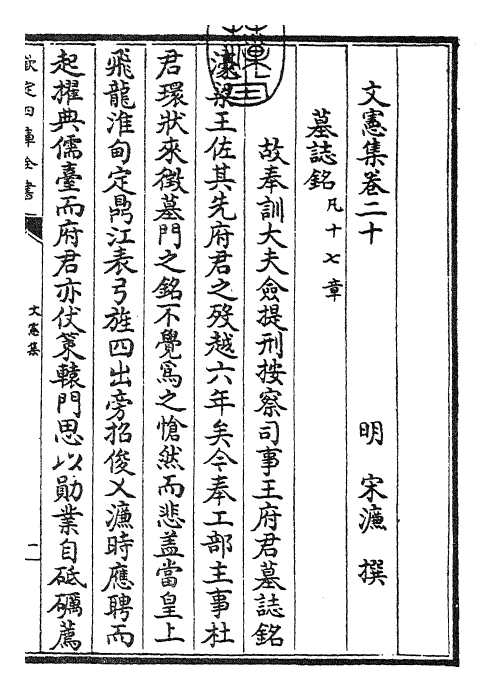 文憲集卷二十
明 宋濂 撰
墓誌銘凡十七章
故奉訓大夫僉提刑按察司事王府君墓誌銘
濠梁王佐其先府君之歿越六年矣今奉工部主事杜
君環狀來徵墓門之銘不覺爲之愴然而悲葢當皇上
飛龍淮甸定鼎江表弓旌四出旁招俊乂濂時應聘而
起擢典儒臺而府君亦仗策轅門思以勛業自砥礪薦
欽定四庫全書
文憲集